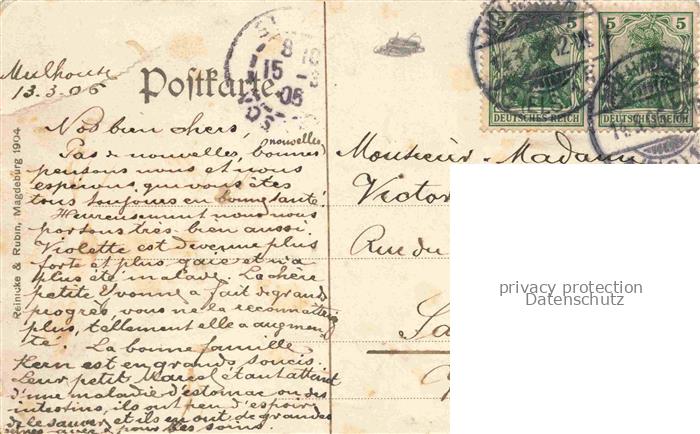 Mulhouse
13.3.06
Postkarte
8
15
05
5 5
5 5
DEUTSCHES REICH
DEUTSCHES REICH
(ELS
Reinicke & Rubin, Magdeburg 1904
Nos bien chers,
Pas de nouvelles, bonnes nouvelles
pensons nous et nous
espérons, que vous êtes
tous toujours en bonne santé.
Heureusement nous nous
portons très bien aussi.
Violette est devenue plus
forte et plus gaie et n'a
plus été malade. La chère
petite Yvonne a fait de grands
progrès, vous ne la reconnaîtriez
plus, tellement elle a augmen-
té. La bonne famille
Kern est en grands soucis.
Leur petit Marcel étant atteint
d'une maladie d'estomac ou des
intestins, ils ont peu d'espoir
de le sauver et ils en ont de grandes
pour les soins.
Monsieur-Madame
Victor
Rue du
privacy protection
Datenschutz